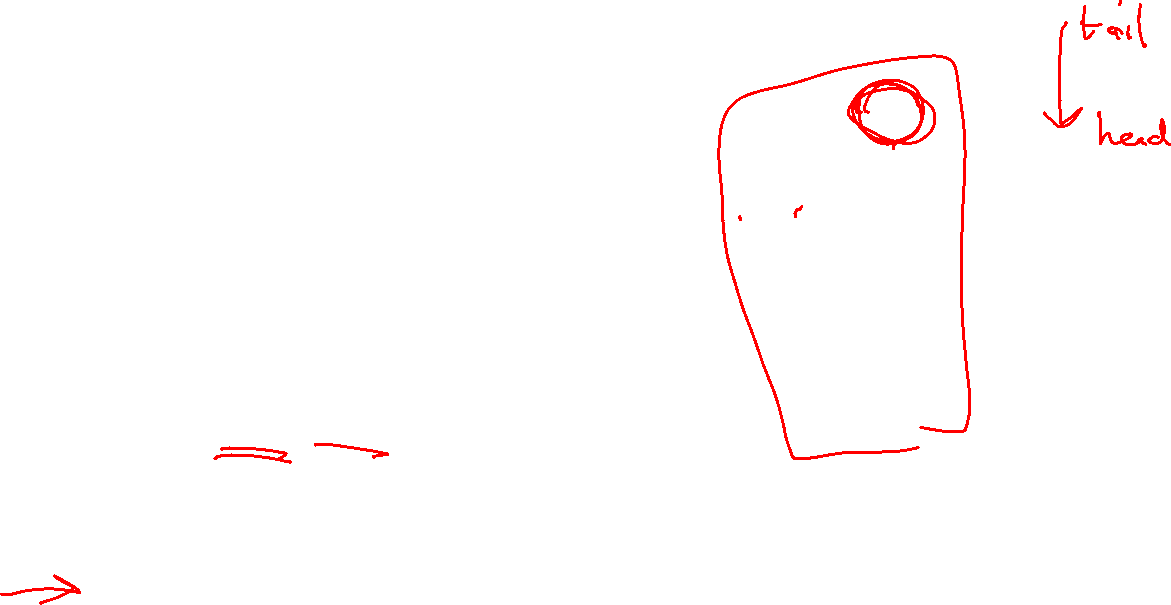 tail
head